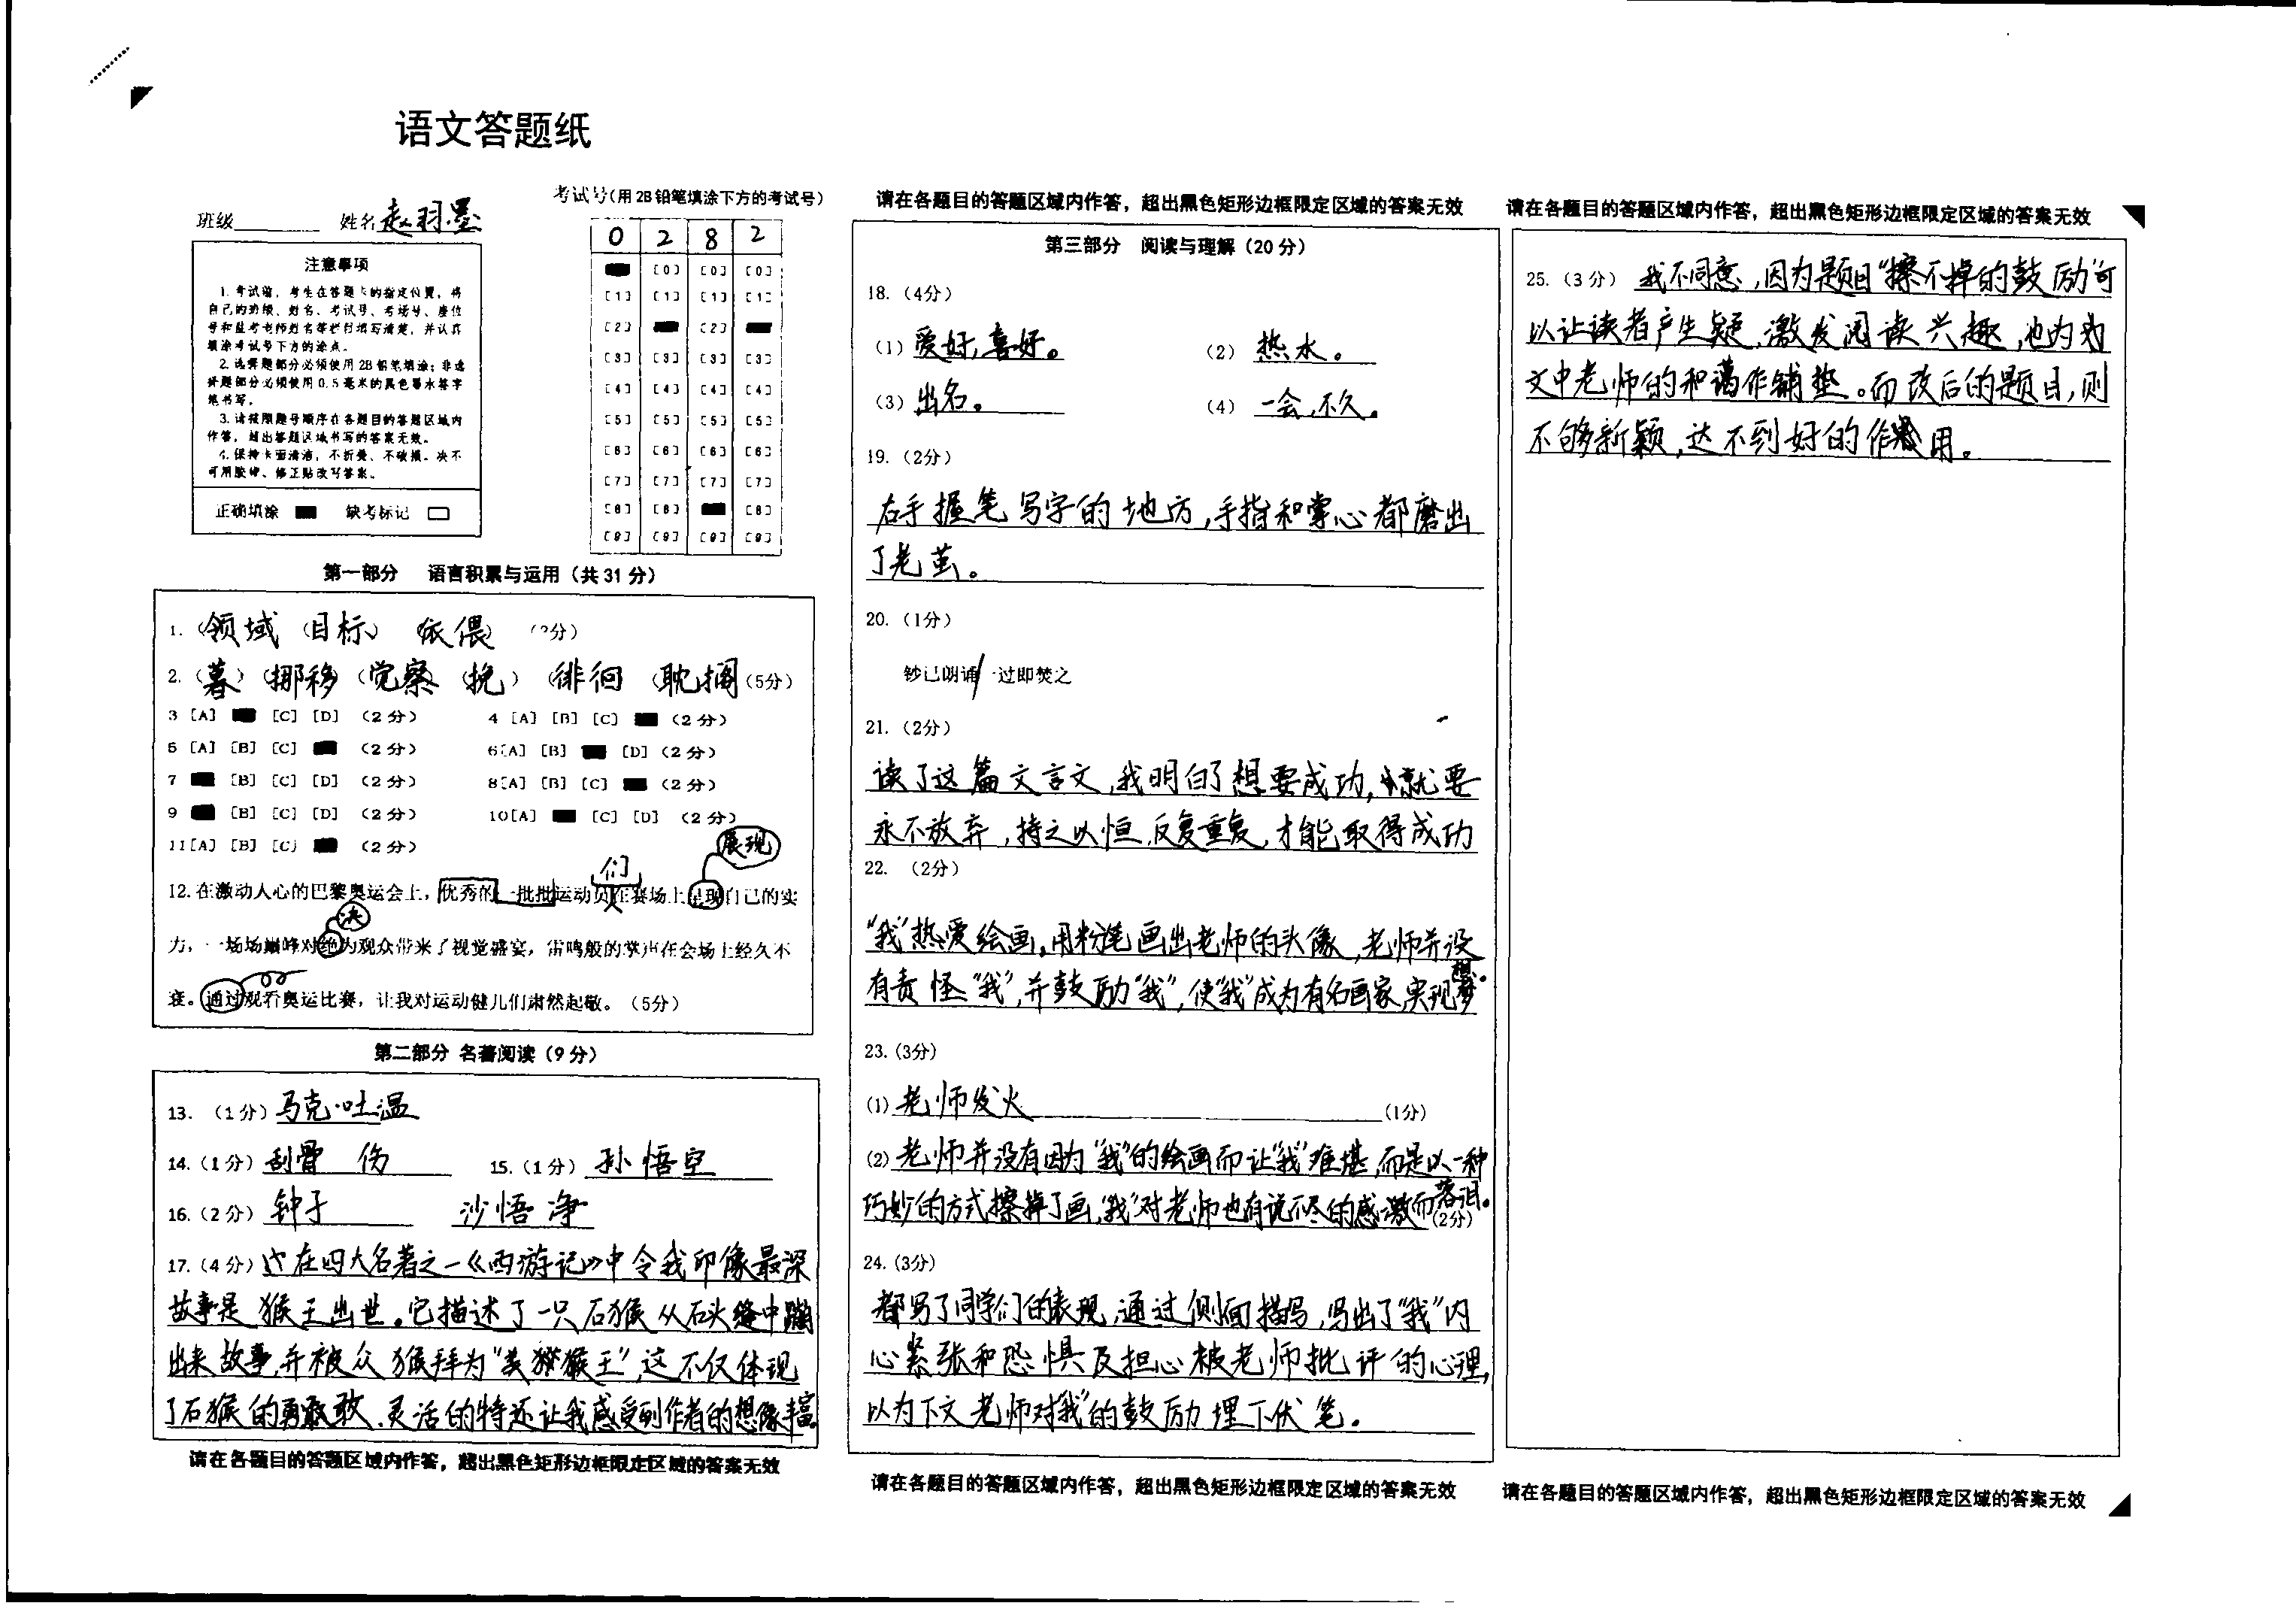 语文答题纸
班级 姓名 赵羽墨
考试号(用2B铅笔填涂下方的考试号)
0 2 8 2
[0] [0] [0]
[1] [1] [1] [1]
[2] [2]
[3] [3] [3] [3]
[4] [4] [4] [4]
[5] [5] [5] [5]
[6] [6] [6] [6]
[7] [7] [7] [7]
[8] [8] [8]
[9] [9] [9] [9]
注意事项
1.考试前,考生在答题卡的指定位置,将
自己的班级、姓名、考试号、考场号、座位
号和监考老师姓名等栏目填写清楚,并认真
填涂考试号下方的涂点。
2.选择题部分必须使用2B铅笔填涂;非选
择题部分必须使用0.5毫米的黑色墨水签字
笔书写。
3.请按照题号顺序在各题目的答题区域内
作答,超出答题区域书写的答案无效。
4.保持卡面清洁,不折叠、不破损。决不
可用胶带、修正贴改写答案。
正确填涂 缺考标记
第一部分 语言积累与运用(共31分)
1.(领域)(目标)(依偎)(3分)
2.(暮)(挪移)(觉察)(挽)(徘徊)(耽搁)(5分)
3 [A] [C] [D] (2分) 4 [A] [B] [C] (2分)
5 [A] [B] [C] (2分) 6[A] [B] [D] (2分)
7 [B] [C] [D] (2分) 8[A] [B] [C] (2分)
9 [B] [C] [D] (2分) 10[A] [C] [D] (2分)
11[A] [B] [C] (2分)
们 展现
12.在激动人心的巴黎奥运会上,优秀的一批批运动员在赛场上呈现自己的实
决
力,一场场巅峰对绝为观众带来了视觉盛宴,雷鸣般的掌声在会场上经久不
衰。通过观看奥运比赛,让我对运动健儿们肃然起敬。(5分)
第二部分 名著阅读(9分)
13.(1分)马克·吐温
14.(1分)刮骨 伤 15.(1分)孙悟空
16.(2分)钟子 沙悟净
17.(4分)在四大名著之一《西游记》中令我印像最深
故事是猴王出世。它描述了一只石猴从石头缝中蹦
出来故事,并被众猴拜为“美猴王”,这不仅体现
了石猴的勇敢、灵活的特还让我感受到作者的想像丰富。
请在各题目的答题区域内作答,超出黑色矩形边框限定区域的答案无效
请在各题目的答题区域内作答,超出黑色矩形边框限定区域的答案无效
第三部分 阅读与理解(20分)
18.(4分)
(1)爱好,喜好。 (2)热水。
(3)出名。 (4)一会,不久。
19.(2分)
右手握笔写字的地方,手指和掌心都磨出
了老茧。
20.(1分)
钞已朗诵/一过即焚之
21.(2分)
读了这篇文言文,我明白了想要成功,就要
永不放弃,持之以恒,反复重复,才能取得成功
22.(2分)
“我”热爱绘画,用粉笔画出老师的头像,老师并没
有责怪“我”,并鼓励“我”,使“我”成为有名画家,实现梦想。
23.(3分)
(1)老师发火 (1分)
(2)老师并没有因为“我”的绘画而让“我”难堪,而是以一种
巧妙的方式擦掉了画,“我”对老师也有说不尽的感激而落泪。(2分)
24.(3分)
都写了同学们的表现,通过侧面描写,写出了“我”内
心紧张和恐惧及担心被老师批评的心理,
以为下文老师对“我”的鼓励埋下伏笔。
请在各题目的答题区域内作答,超出黑色矩形边框限定区域的答案无效
请在各题目的答题区域内作答,超出黑色矩形边框限定区域的答案无效
25.(3分)我不同意,因为题目“擦不掉的鼓励”可
以让读者产生疑,激发阅读兴趣,也内为
文中老师的和蔼作铺垫。而改后的题目,则
不够新颖,达不到好的作用。
请在各题目的答题区域内作答,超出黑色矩形边框限定区域的答案无效